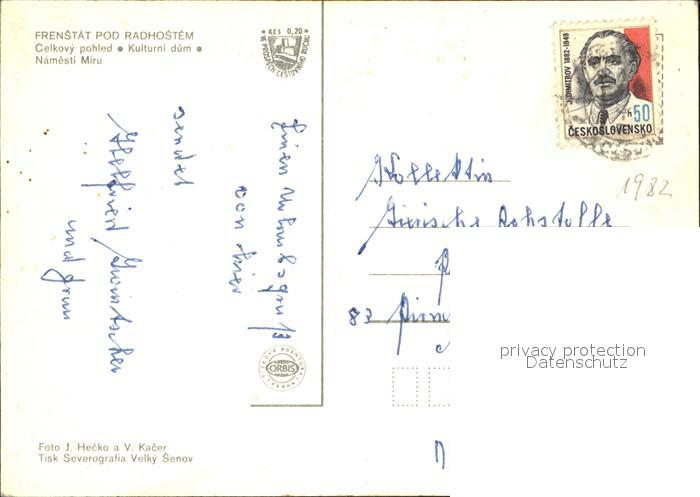 FRENŠTÁT POD RADHOŠTĚM
Celkový pohled • Kulturní dům •
Náměstí Míru
KČS 0,20
VE PROSPĚCH CESTOVNÍHO RUCHU
J. DIMITROV 1882-1949
50 h
ČESKOSLOVENSKO
1982
Kollektiv
Tierische Rohstoffe
83 Pirn
Einen Urlaubsgruß
von hier
sendet
und
ORBIS
privacy protection
Datenschutz
Foto J. Hečko a V. Kačer
Tisk Severografia Velký Šenov